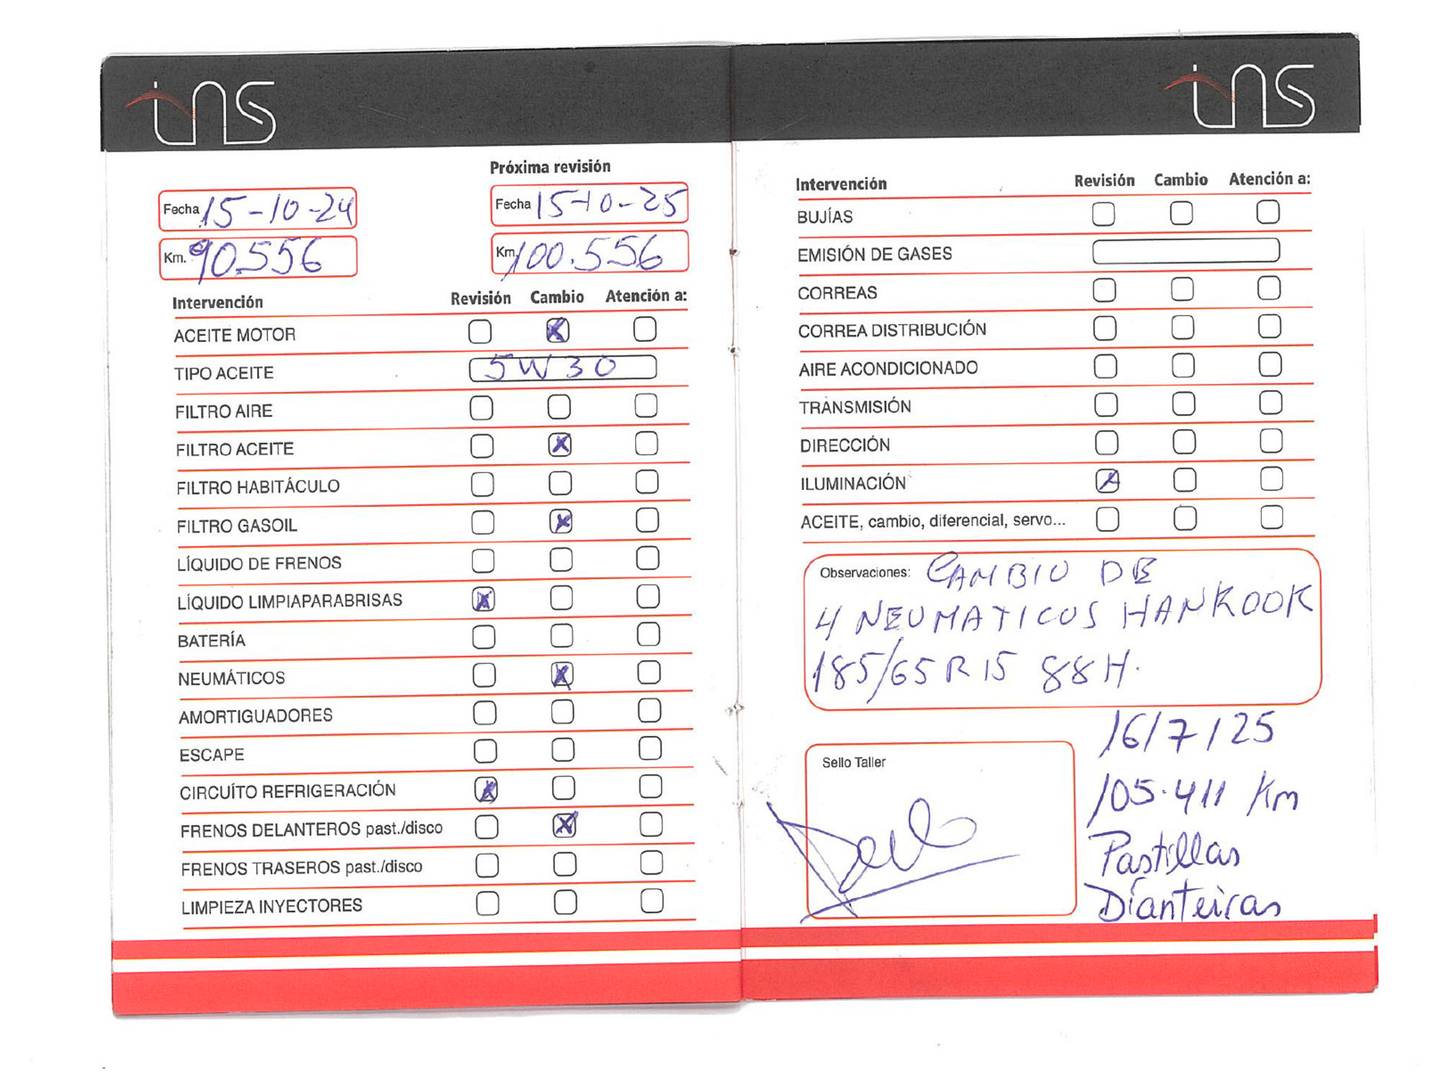 ins
ins
Próxima revisión
Fecha 15-10-24
Fecha 15-10-25
Km. 90.556
Km. 100.556
Intervención Revisión Cambio Atención a:
ACEITE MOTOR
TIPO ACEITE 5W30
FILTRO AIRE
FILTRO ACEITE
FILTRO HABITÁCULO
FILTRO GASOIL
LÍQUIDO DE FRENOS
LÍQUIDO LIMPIAPARABRISAS
BATERÍA
NEUMÁTICOS
AMORTIGUADORES
ESCAPE
CIRCUÍTO REFRIGERACIÓN
FRENOS DELANTEROS past./disco
FRENOS TRASEROS past./disco
LIMPIEZA INYECTORES
Intervención Revisión Cambio Atención a:
BUJÍAS
EMISIÓN DE GASES
CORREAS
CORREA DISTRIBUCIÓN
AIRE ACONDICIONADO
TRANSMISIÓN
DIRECCIÓN
ILUMINACIÓN
ACEITE, cambio, diferencial, servo...
Observaciones: CAMBIO DE
4 NEUMATICOS HANKOOK
185/65 R 15 88H.
Sello Taller
16/7/25
105.411 Km
Pastillas
Dianteiras